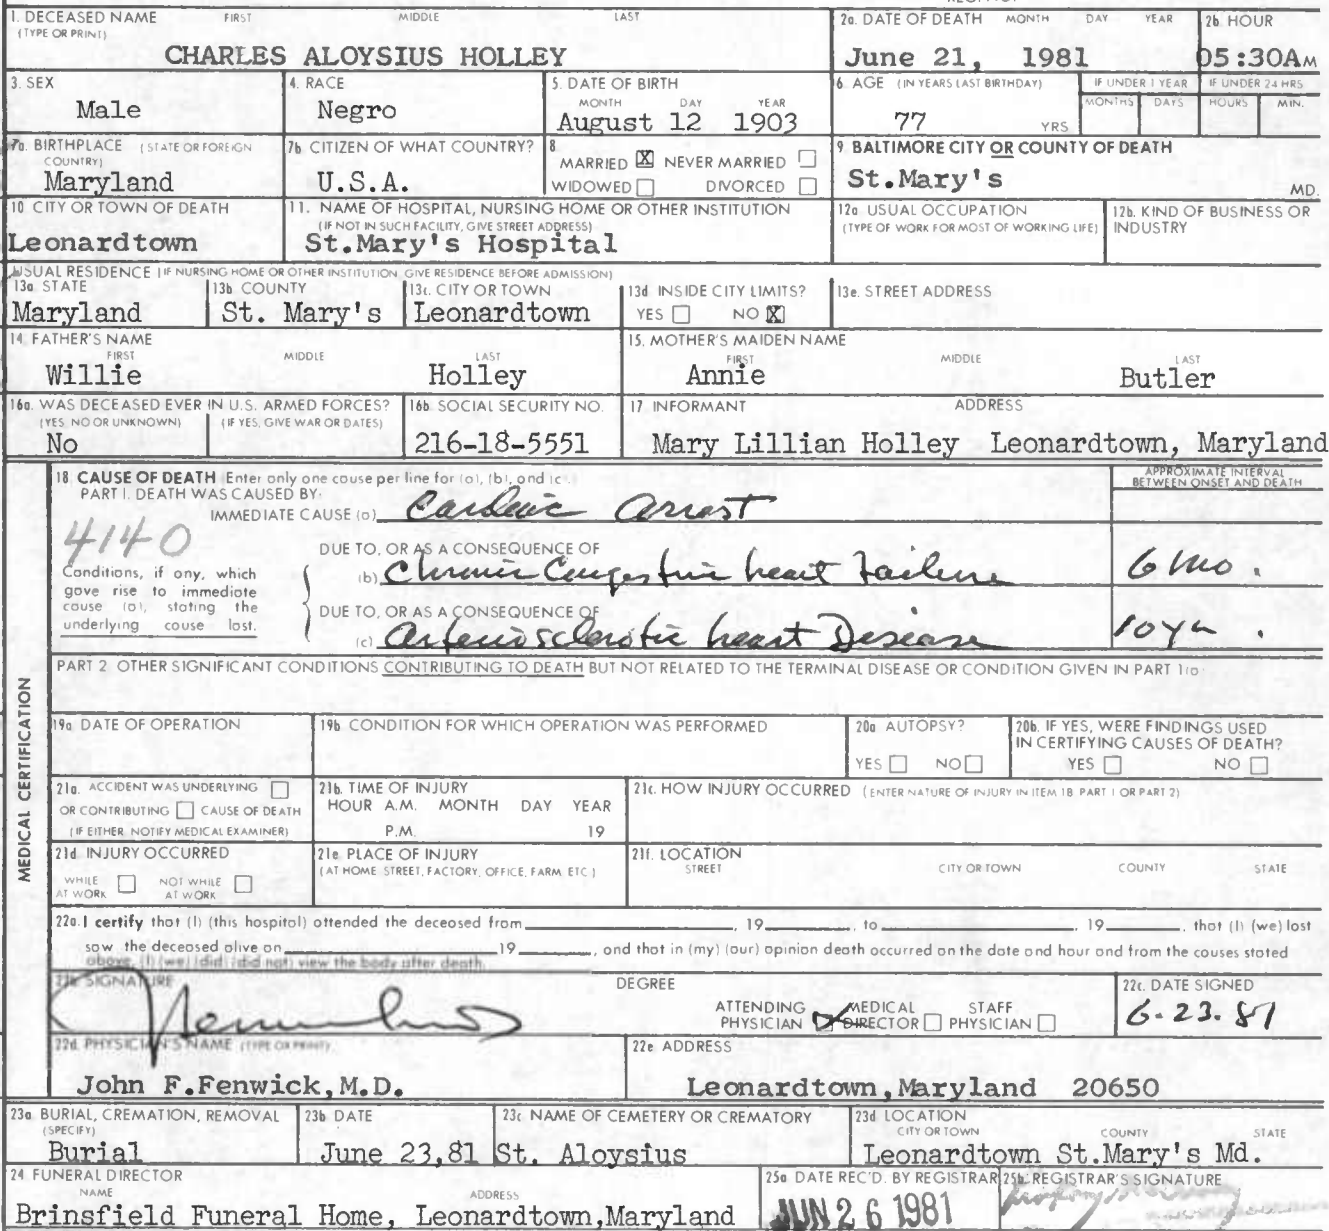 1. DECEASED NAME FIRST MIDDLE LAST
(TYPE OR PRINT)
CHARLES ALOYSIUS HOLLEY
2a. DATE OF DEATH MONTH DAY YEAR
June 21, 1981
2b HOUR
05:30AM
3. SEX
Male
4. RACE
Negro
5. DATE OF BIRTH
MONTH DAY YEAR
August 12 1903
6 AGE (IN YEARS LAST BIRTHDAY)
77 YRS
IF UNDER 1 YEAR
MONTHS DAYS
IF UNDER 24 HRS
HOURS MIN.
7a. BIRTHPLACE (STATE OR FOREIGN
COUNTRY)
Maryland
7b CITIZEN OF WHAT COUNTRY?
U.S.A.
8
MARRIED X NEVER MARRIED
WIDOWED DIVORCED
9 BALTIMORE CITY OR COUNTY OF DEATH
St.Mary's MD.
10 CITY OR TOWN OF DEATH
Leonardtown
11. NAME OF HOSPITAL, NURSING HOME OR OTHER INSTITUTION
(IF NOT IN SUCH FACILITY, GIVE STREET ADDRESS)
St.Mary's Hospital
12a USUAL OCCUPATION
(TYPE OF WORK FOR MOST OF WORKING LIFE)
12b. KIND OF BUSINESS OR
INDUSTRY
USUAL RESIDENCE (IF NURSING HOME OR OTHER INSTITUTION GIVE RESIDENCE BEFORE ADMISSION)
13a STATE
Maryland
13b COUNTY
St. Mary's
13c. CITY OR TOWN
Leonardtown
13d INSIDE CITY LIMITS?
YES NO X
13e. STREET ADDRESS
14 FATHER'S NAME
FIRST MIDDLE LAST
Willie Holley
15. MOTHER'S MAIDEN NAME
FIRST MIDDLE LAST
Annie Butler
16a. WAS DECEASED EVER IN U.S. ARMED FORCES?
(YES, NO OR UNKNOWN) (IF YES, GIVE WAR OR DATES)
No
16b SOCIAL SECURITY NO.
216-18-5551
17 INFORMANT ADDRESS
Mary Lillian Holley Leonardtown, Maryland
MEDICAL CERTIFICATION
18 CAUSE OF DEATH Enter only one cause per line for (a), (b), and (c).
PART I. DEATH WAS CAUSED BY:
IMMEDIATE CAUSE (a) Cardiac arrest
APPROXIMATE INTERVAL
BETWEEN ONSET AND DEATH
4140
Conditions, if any, which
gave rise to immediate
cause (a), stating the
underlying cause last.
DUE TO, OR AS A CONSEQUENCE OF
(b) Chronic Congestive heart Failure 6 mo.
DUE TO, OR AS A CONSEQUENCE OF
(c) arteriosclerotic heart Disease 10 yr.
PART 2 OTHER SIGNIFICANT CONDITIONS CONTRIBUTING TO DEATH BUT NOT RELATED TO THE TERMINAL DISEASE OR CONDITION GIVEN IN PART 1(a)
19a DATE OF OPERATION
19b CONDITION FOR WHICH OPERATION WAS PERFORMED
20a AUTOPSY?
YES NO
20b. IF YES, WERE FINDINGS USED
IN CERTIFYING CAUSES OF DEATH?
YES NO
21a. ACCIDENT WAS UNDERLYING
OR CONTRIBUTING CAUSE OF DEATH
(IF EITHER NOTIFY MEDICAL EXAMINER)
21b. TIME OF INJURY
HOUR A.M. MONTH DAY YEAR
P.M. 19
21c. HOW INJURY OCCURRED (ENTER NATURE OF INJURY IN ITEM 18 PART 1 OR PART 2)
21d INJURY OCCURRED
WHILE AT WORK NOT WHILE AT WORK
21e PLACE OF INJURY
(AT HOME STREET, FACTORY, OFFICE, FARM ETC.)
21f. LOCATION
STREET CITY OR TOWN COUNTY STATE
22a. I certify that (I) (this hospital) attended the deceased from , 19 , to , 19 , that (I) (we) last
saw the deceased alive on 19 , and that in (my) (our) opinion death occurred on the date and hour and from the causes stated
above, (I) (we) (did) (did not) view the body after death.
22b SIGNATURE
DEGREE
ATTENDING PHYSICIAN MEDICAL DIRECTOR STAFF PHYSICIAN
22c. DATE SIGNED
6-23-81
22d PHYSICIAN'S NAME (TYPE OR PRINT)
John F.Fenwick,M.D.
22e ADDRESS
Leonardtown,Maryland 20650
23a BURIAL, CREMATION, REMOVAL
(SPECIFY)
Burial
23b DATE
June 23,81
23c NAME OF CEMETERY OR CREMATORY
St. Aloysius
23d LOCATION
CITY OR TOWN COUNTY STATE
Leonardtown St.Mary's Md.
24 FUNERAL DIRECTOR
NAME ADDRESS
Brinsfield Funeral Home, Leonardtown,Maryland
25a DATE REC'D. BY REGISTRAR
JUN 26 1981
25b REGISTRAR'S SIGNATURE